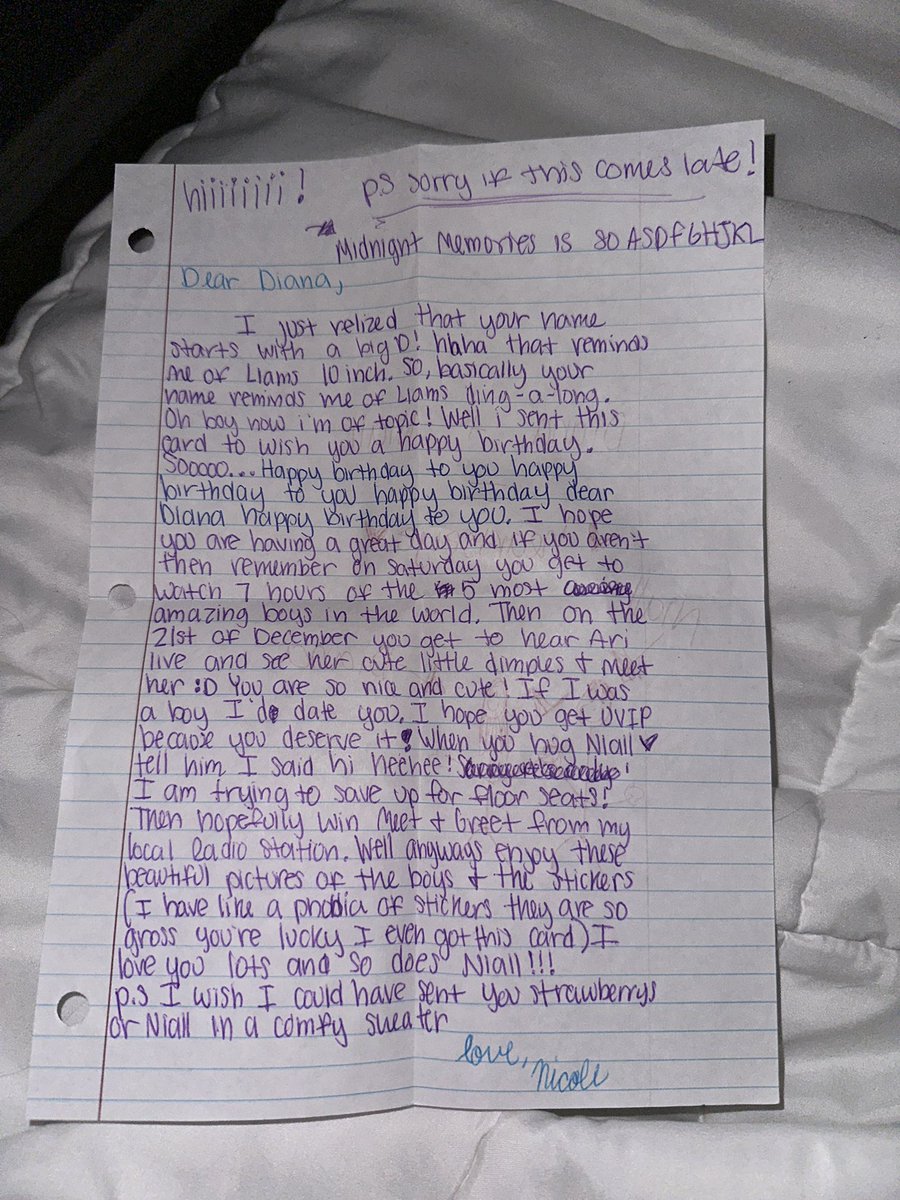 hiiiiiiii!
p.s sorry if this comes late!
Midnight Memories is so ASDFGHJKL
Dear Diana,
I just relized that your name
starts with a big D! hhaha that reminds
me of Liams 10 inch. SO, basically your
name reminds me of Liams ding-a-long.
Oh boy now i'm of topic! Well i sent this
card to wish you a happy birthday.
Sooooo... Happy birthday to you happy
birthday to you happy birthday dear
Diana happy birthday to you. I hope
you are having a great day and if you aren't
then remember on Saturday you get to
watch 7 hours of the 5 most
amazing boys in the world. Then on the
21st of December you get to hear Ari
live and see her cute little dimples + meet
her :D You are so nice and cute! If I was
a boy I'd date you. I hope you get UVIP
because you deserve it! When you hug Niall ♥
tell him I said hi heehee!
I am trying to save up for floor seats!
Then hopefully win Meet + Greet from my
local Radio station. Well anyways enjoy these
beautiful pictures of the boys + the stickers
(I have like a phobia of stickers they are so
gross you're lucky I even got this card) I
love you lots and so does Niall!!!
p.s I wish I could have sent you strawberrys
or Niall in a comfy sweater
love,
Nicole